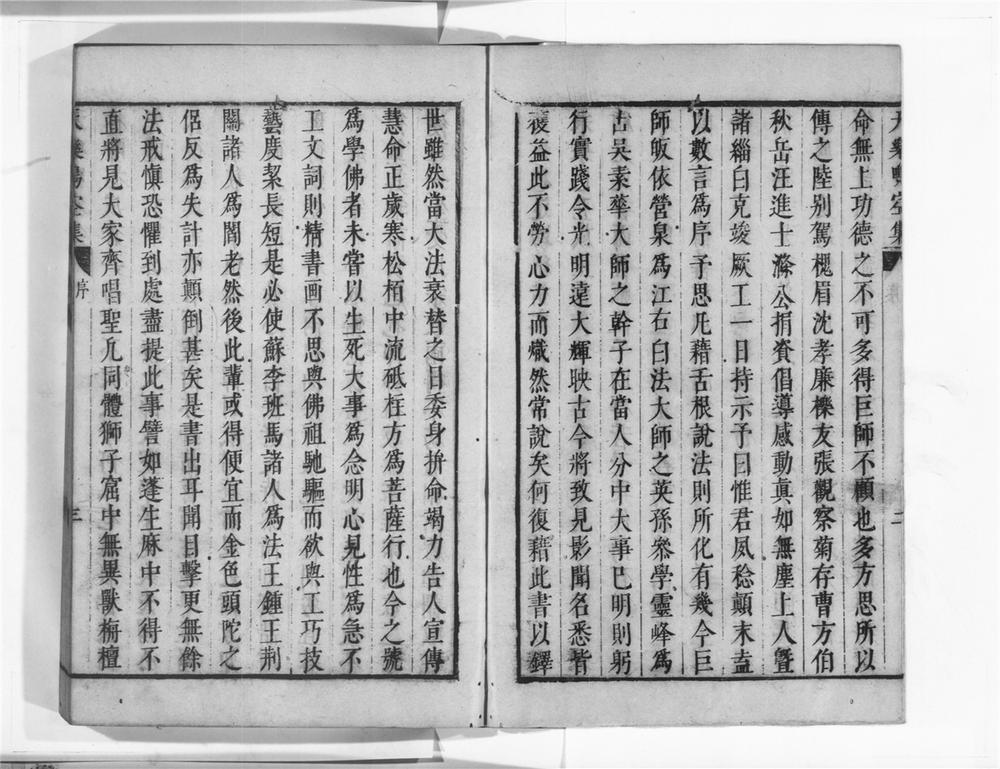 命無上功德之不可多得巨師不顧也多方思所以
傳之陸別駕槐眉沈孝廉櫟友張觀察菊存曹方伯
秋岳汪進士滌公捐資倡導感動眞如無塵上人曁
諸緇白克竣厥工一日持示予曰惟君夙稔顛末盍
以數言爲序予思凡藉舌根說法則所化有幾今巨
師皈依營泉爲江右白法大師之英孫叅學靈峰爲
古吳素華大師之幹子在當人分中大事已明則躬
行實踐令光明遠大輝映古今將致見影聞名悉皆
獲益此不勞心力而熾然常說矣何復藉此書以鐸
世雖然當大法衰替之日委身拚命竭力告人宣傳
慧命正歲寒松栢中流砥柱方爲菩薩行也今之號
爲學佛者未嘗以生死大事爲念明心見性爲急不
工文詞則精書画不思與佛祖馳驅而欲與工巧技
藝度絜長短是必使蘇李班馬諸人爲法王鍾王荆
關諸人爲閻老然後此輩或得便宜而金色頭陀之
侶反爲失計亦顛倒甚矣是書出耳聞目擊更無餘
法戒愼恐懼到處盡提此事譬如蓬生麻中不得不
直將見大家齊唱聖凡同體獅子窟中無異獸栴檀
序
三